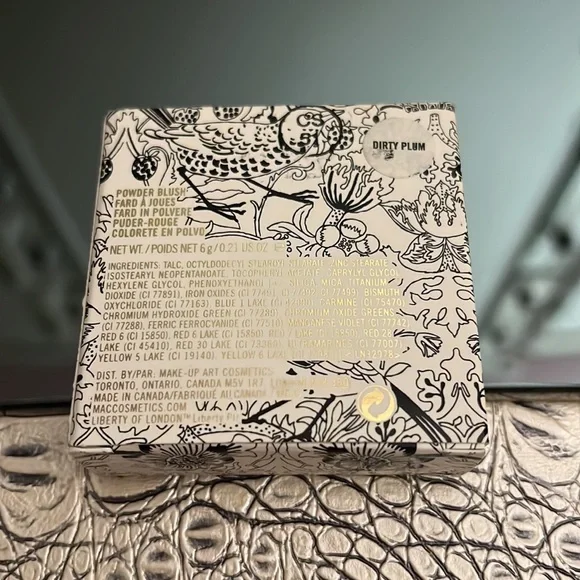 DIRTY PLUM
POWDER BLUSH
FARD À JOUES
FARD IN POLVERE
PUDER-ROUGE
COLORETE EN POLVO
NET WT. / POIDS NET 6 g / 0.21 US OZ
INGREDIENTS: TALC, OCTYLDODECYL STEAROYL STEARATE, ZINC STEARATE,
ISOSTEARYL NEOPENTANOATE, TOCOPHERYL ACETATE, CAPRYLYL GLYCOL,
HEXYLENE GLYCOL, PHENOXYETHANOL SILICA, MICA, TITANIUM
DIOXIDE (CI 77891), IRON OXIDES (CI 77499), BISMUTH
OXYCHLORIDE (CI 77163), BLUE 1 LAKE CARMINE (CI 75470),
CHROMIUM HYDROXIDE GREEN (CI 77289), CHROMIUM OXIDE GREENS
(CI 77288), FERRIC FERROCYANIDE (CI 77510), MANGANESE VIOLET (CI 77742),
RED 6 (CI 15850), RED 6 LAKE (CI 15850), RED 28
LAKE (CI 45410), RED 30 LAKE (CI 73360), ULTRAMARINES (CI 77007),
YELLOW 5 LAKE (CI 19140), YELLOW 6
DIST. BY/PAR. MAKE-UP ART COSMETICS
TORONTO, ONTARIO. CANADA M5V 1R7
MADE IN CANADA/FABRIQUÉ AU CANADA
MACCOSMETICS.COM
LIBERTY OF LONDON™ Liberty